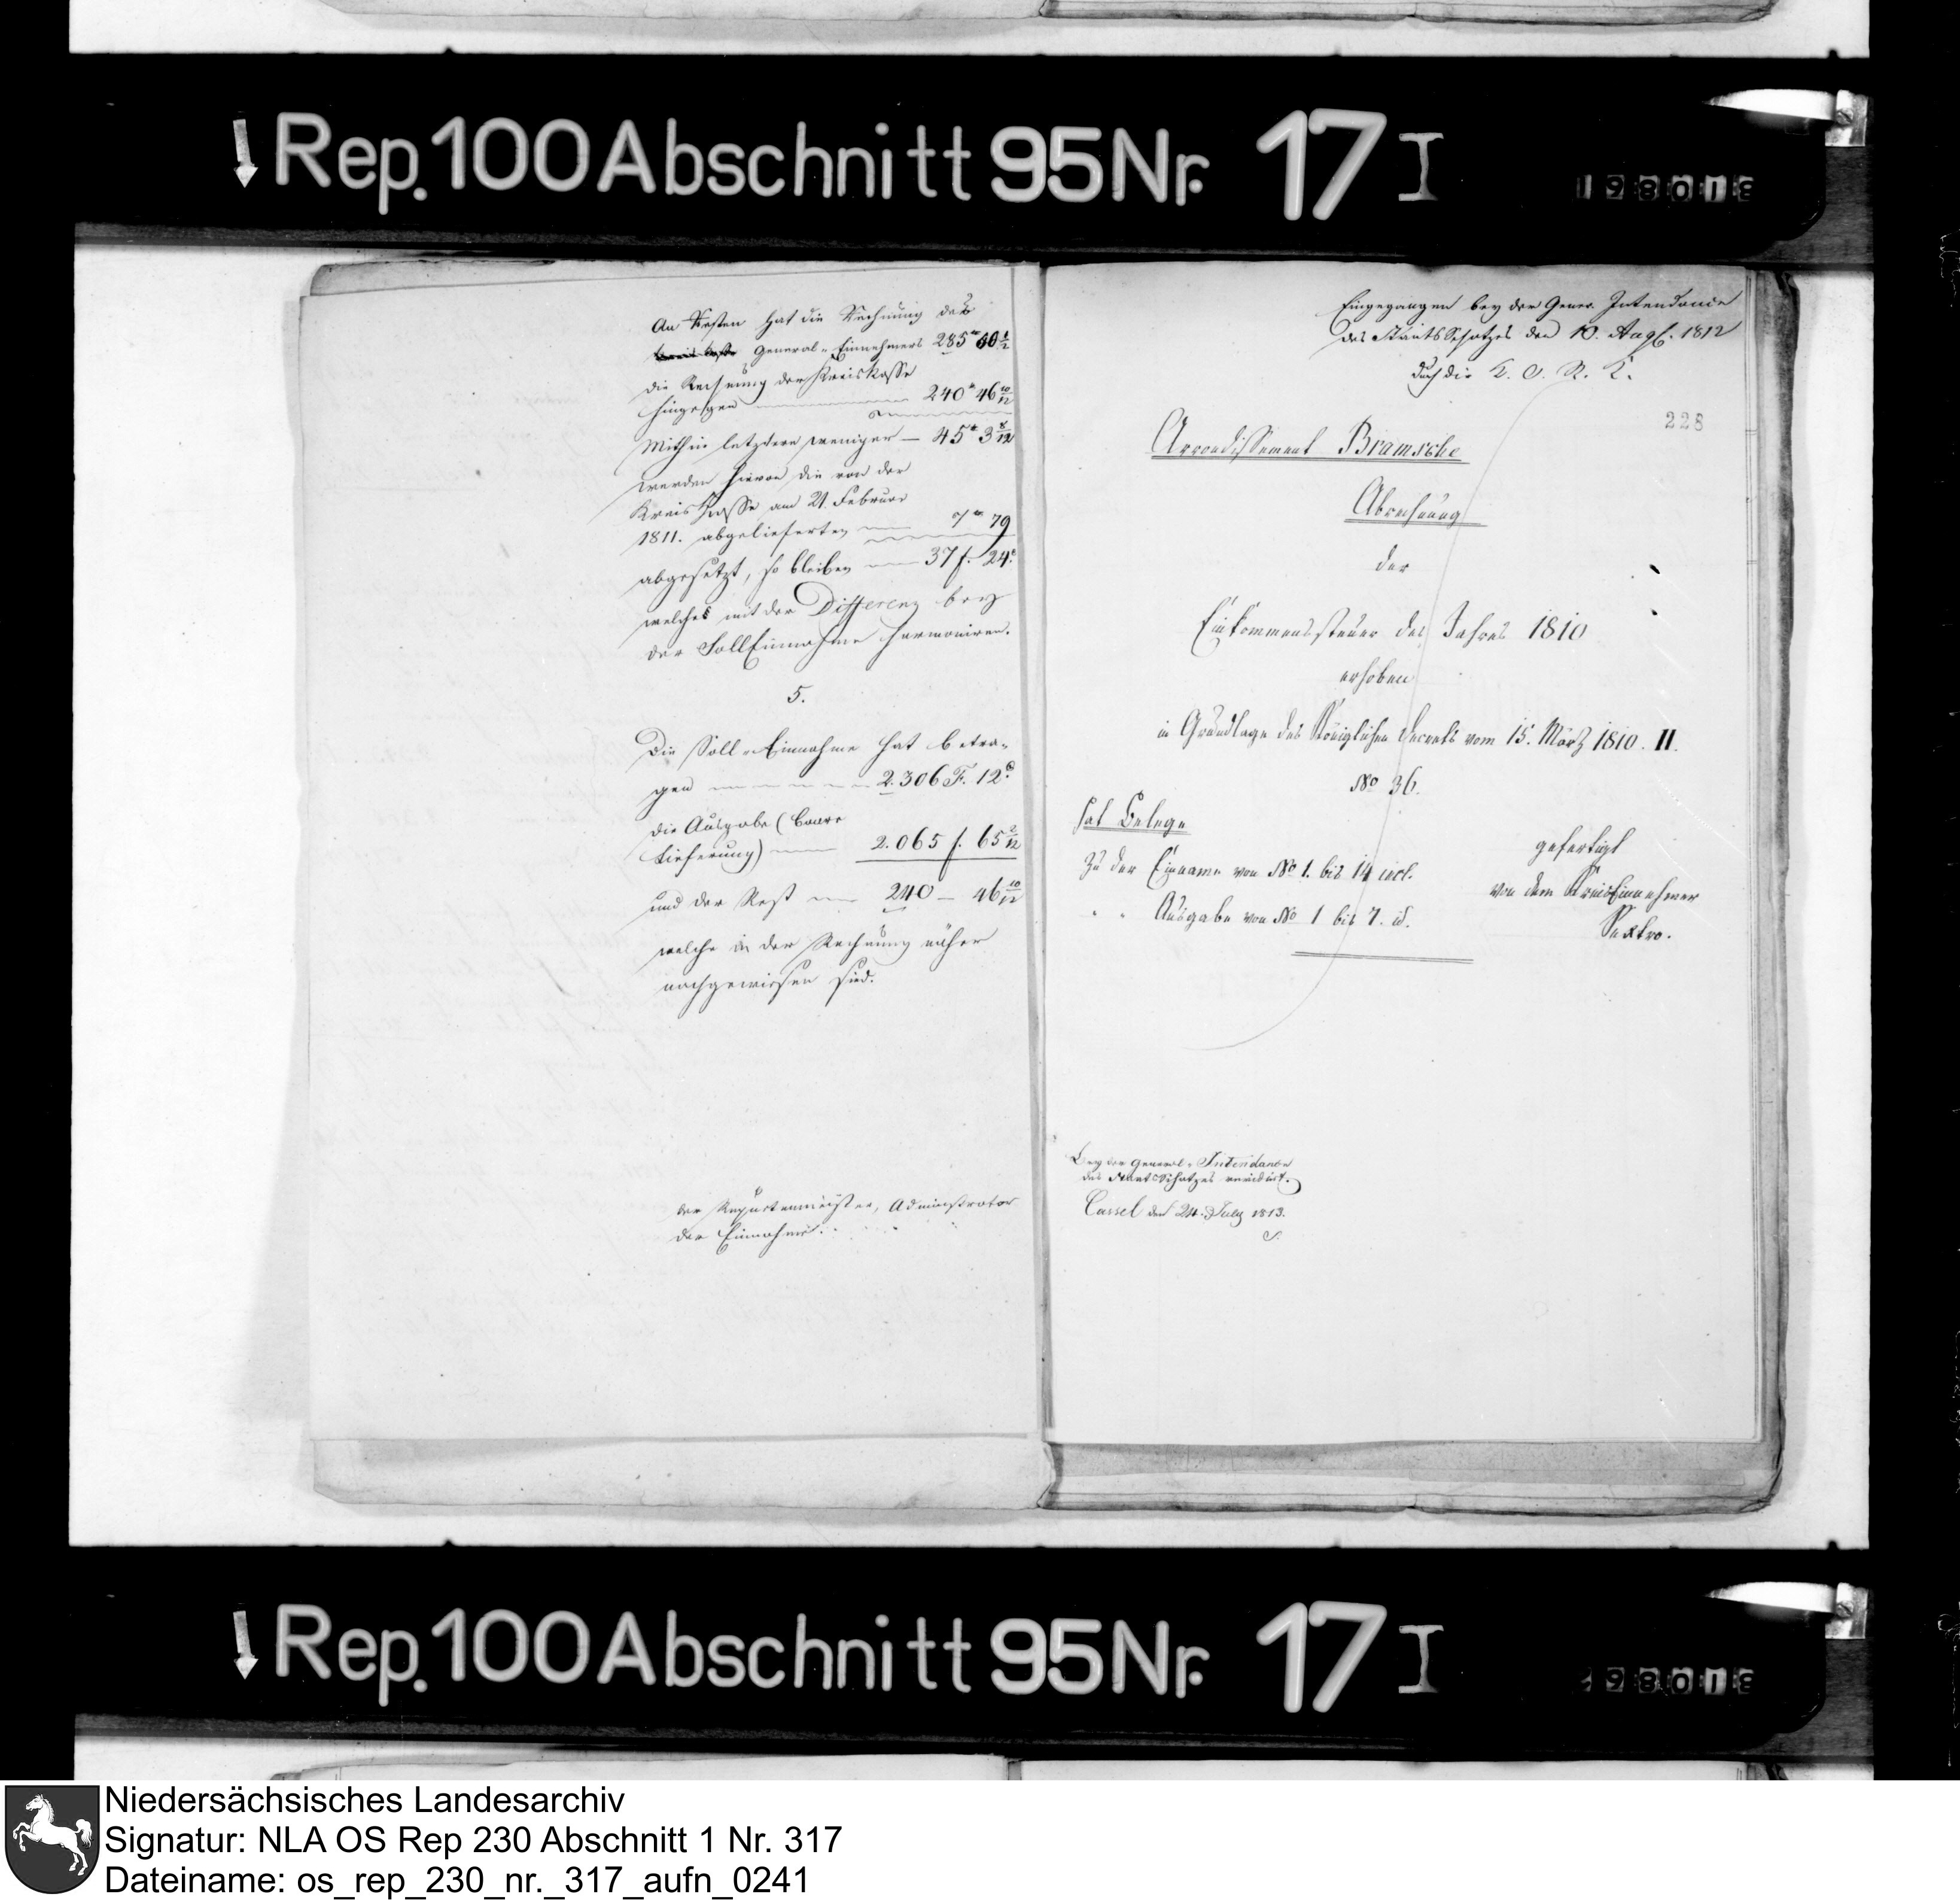 Rep. 100 Abschnitt 95 Nr. 17 I
An Resten hat die Rechnung des
General-Einnehmers 285
die Rechnung der Kreiskasse
hingegen 240 46 10/12
Mithin letztere weniger — 45 3 8/12
werden hievon die von der
Kreis Kasse am 21. Februar
1811. abgelieferten 7 79
abgesetzt, so bleiben 37 f. 24
welches mit der Differenz bey
der SollEinnahme harmoniren.
5.
Die Soll-Einnahme hat betra-
gen 2.306 F. 12 c
die Ausgabe (baare
Lieferung) 2.065 f. 65 2/12
und der Rest 240 — 46 10/12
welche in der Rechnung näher
nachgewiesen sind.
der Administrator
der Einnahme.
Eingegangen bey der Gener. Intendance
des StaatsSchatzes den 10. Aug. 1812
durch die
228
Arrondissement Bramsche
Abrechnung
der
Einkommenssteuer des Jahres 1810
erhoben
in Grundlage des Königlichen Decrets vom 15. März 1810. II.
No 36.
hat Belege
zu der Einname von No 1. bis 14 incl.
" " Ausgabe von No 1 bis 7. id.
gefertigt
von dem Kreiseinnehmer
Sextro.
Bey der General-Intendance
des StaatsSchatzes revidirt.
Cassel den 24. July 1813.
Rep. 100 Abschnitt 95 Nr. 17 I
Niedersächsisches Landesarchiv
Signatur: NLA OS Rep 230 Abschnitt 1 Nr. 317
Dateiname: os_rep_230_nr._317_aufn_0241